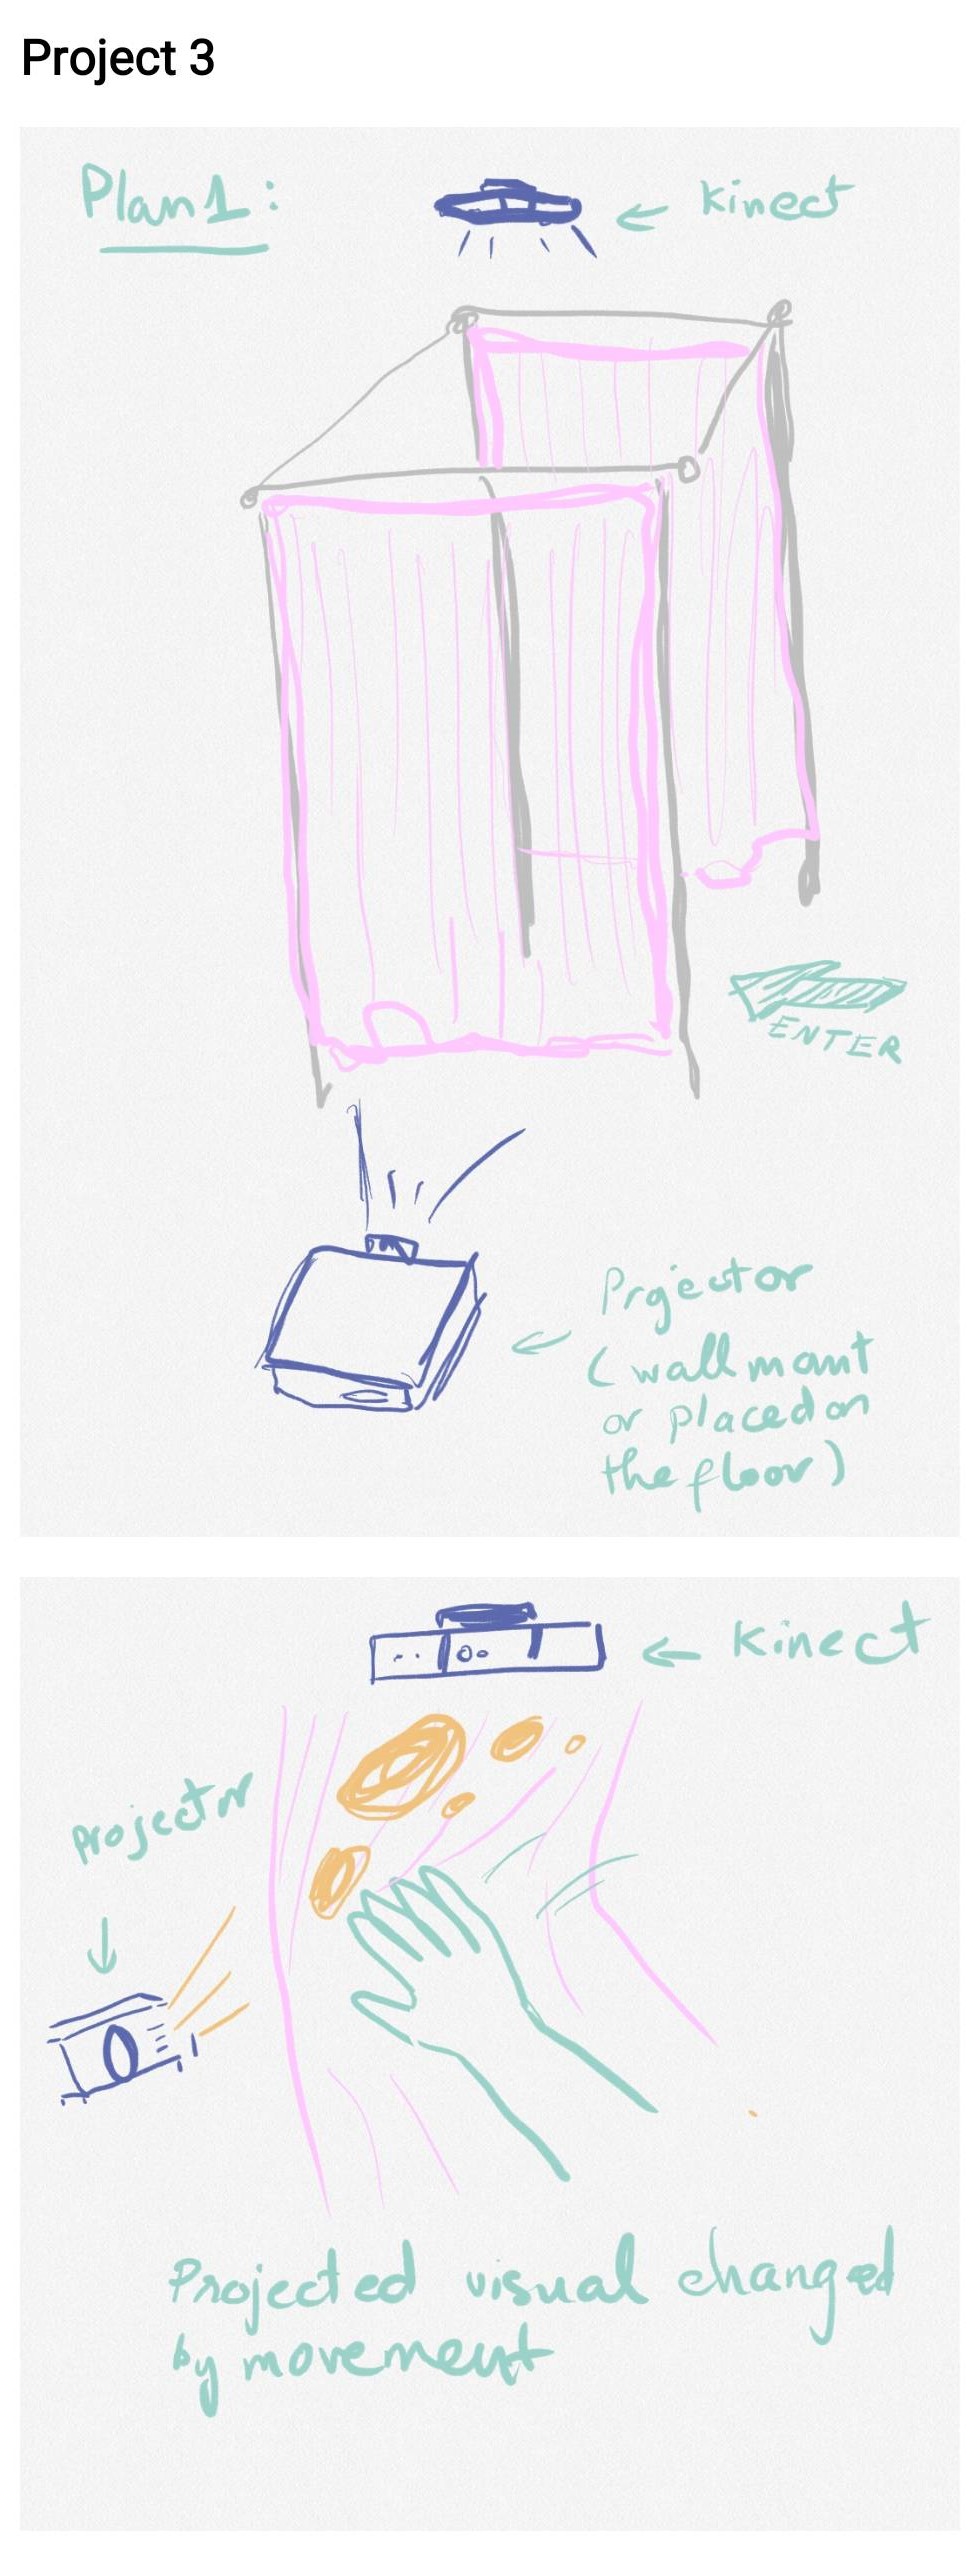 Project 3
Plan1:
kinect
ENTER
Projector
(wall mount
or placed on
the floor)
kinect
projector
Projected visual changed
by movement